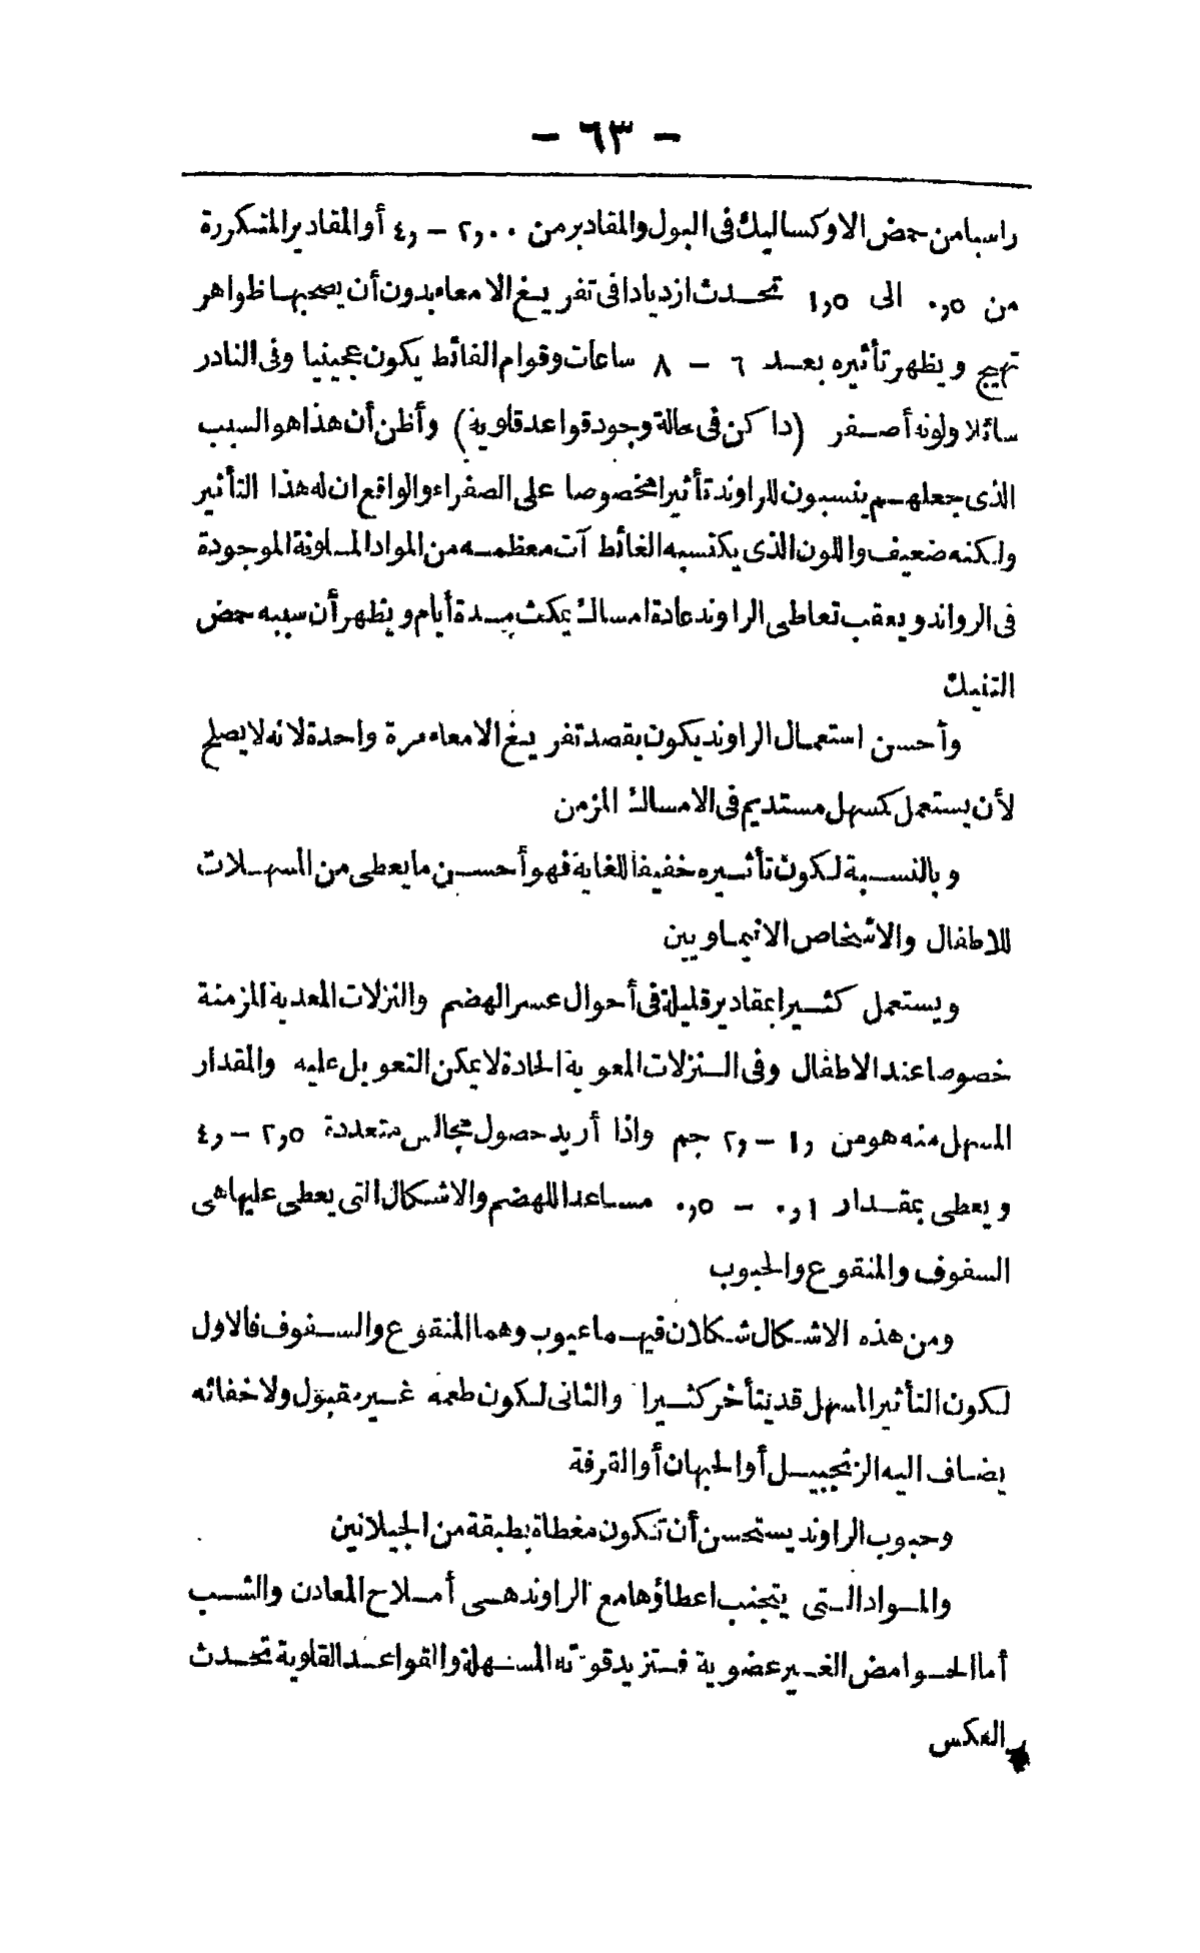 — ٦٣ —
راسبا من حمض الاوكساليك فى البول والمقادير من ٢,٠٠ — ٤, أو المقادير المتكررة
من ٠,٥ الى ١,٥ تحدث ازديادا فى تفريغ الامعاء بدون أن يصحبها ظواهر
تهيج ويظهر تأثيره بعد ٦ — ٨ ساعات وقوام الغائط يكون عجينيا وفى النادر
سائلا ولونه أصفر (داكن فى حالة وجود قواعد قلوية) وأظن أن هذا هو السبب
الذى جعلهم ينسبون للراوند تأثيرا مخصوصا على الصفراء والواقع ان له هذا التأثير
ولكنه ضعيف واللون الذى يكتسبه الغائط آت معظمه من المواد الملونة الموجودة
فى الرواند ويعقب تعاطى الراوند عادة امساك يمكث مدة أيام ويظهر أن سببه حمض
التنيك
وأحسن استعمال الراوند يكون بقصد تفريغ الامعاء مرة واحدة لانه لا يصلح
لأن يستعمل كمسهل مستديم فى الامساك المزمن
وبالنسبة لكون تأثيره خفيفا للغاية فهو أحسن ما يعطى من المسهلات
للاطفال والاشخاص الانيماويين
ويستعمل كثيرا بمقادير قليلة فى أحوال عسر الهضم والنزلات المعدية المزمنة
خصوصا عند الاطفال وفى النزلات المعوية الحادة لا يمكن التعويل عليه والمقدار
المسهل منه هو من ١, — ٢, جم واذا أريد حصول مجالس متعددة ٢,٥ — ٤,
ويعطى بمقدار ٠,١ — ٠,٥ مساعدا للهضم والاشكال التى يعطى عليها هى
السفوف والمنقوع والحبوب
ومن هذه الاشكال شكلان فيهما عيوب وهما المنقوع والسفوف فالاول
لكون التأثير المسهل قد يتأخر كثيرا والثانى لكون طعمه غير مقبول ولاخفائه
يضاف اليه الزنجبيل أو الحبهان أو القرفة
وحبوب الراوند يستحسن أن تكون مغطاة بطبقة من الجيلاتين
والمواد التى يتجنب اعطاؤها مع الراوند هى أملاح المعادن والشب
أما الحوامض الغير عضوية فتزيد قوته المسهلة والقواعد القلوية تحدث
العكس